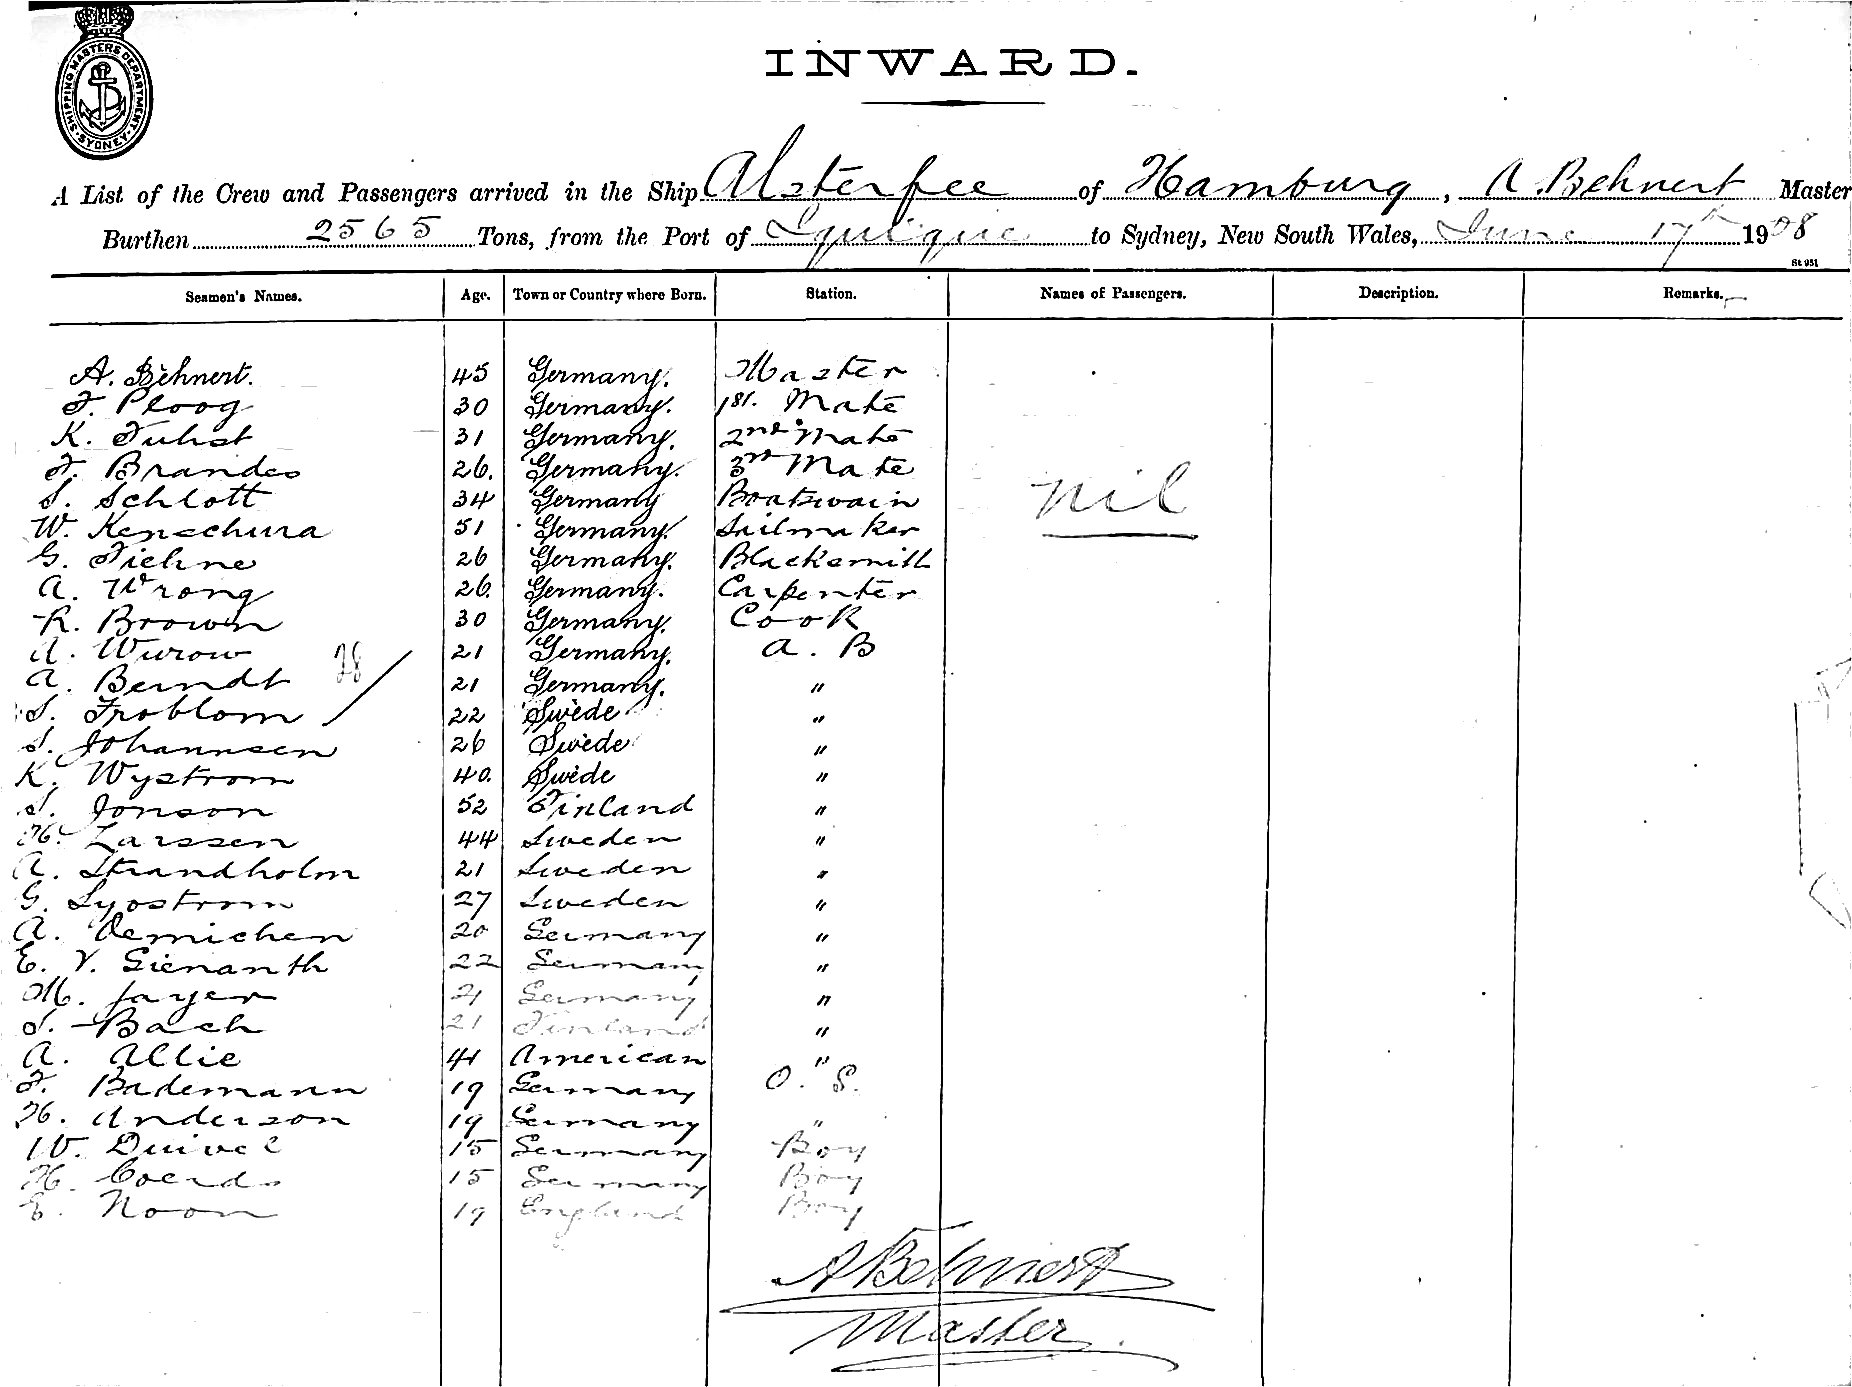 SHIPPING MASTERS DEPARTMENT · SYDNEY ·
INWARD.
A List of the Crew and Passengers arrived in the Ship Alsterfee of Hamburg, A. Behnert Master
Burthen 2565 Tons, from the Port of Iquique to Sydney, New South Wales, June 17th 1908
St 951
Seamen's Names. Age. Town or Country where Born. Station. Names of Passengers. Description. Remarks.
A. Behnert. 45 Germany. Master
F. Ploog 30 Germany. 1st. Mate
K. Tuhst 31 Germany. 2nd Mate
F. Brandes 26. Germany. 3rd Mate
S. Schlott 34 Germany Boatswain
nil
W. Kenschura 51 Germany. Sailmaker
G. Tiehne 26 Germany. Blacksmith
A. Wrong 26. Germany. Carpenter
R. Brown 30 Germany. Cook
A. Wurow 21 Germany. A. B
28
A. Berndt 21 Germany. "
S. Froblom 22 Swede "
S. Johannsen 26 Swede "
K. Wystrom 40. Swede "
S. Jonson 52 Finland "
H. Larssen 44 Sweden "
A. Strandholm 21 Sweden "
G. Syostrom 27 Sweden "
A. Oemichen 20 Germany "
E. V. Gienanth 22 Germany "
M. Jayer 21 Germany "
S. Bach 21 Finland "
A. Allie 41 American "
F. Bademann 19 Germany O. S.
H. Anderson 19 Germany "
W. Duivel 15 Germany Boy
H. Coerds 15 Germany Boy
E. Noon 19 England Boy
A Behnert
Master